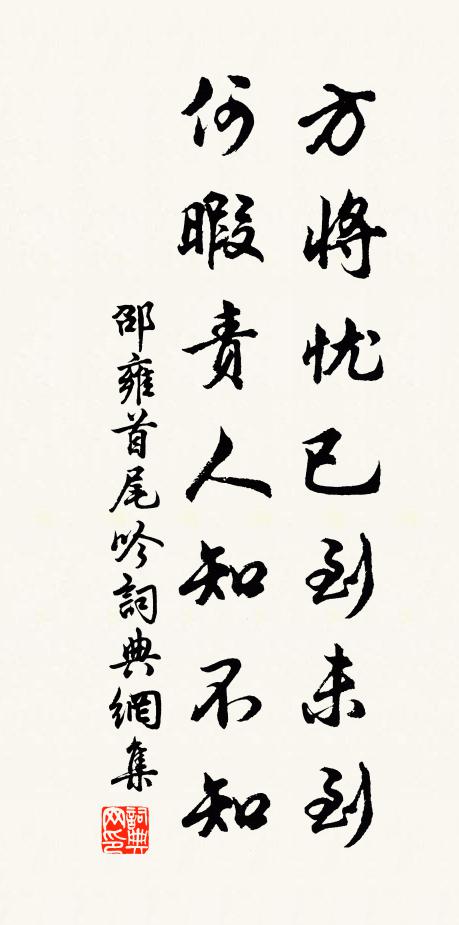 方将忧已到未到
何暇責人知不知
邵雍首尾吟詞典網集
詞典网印